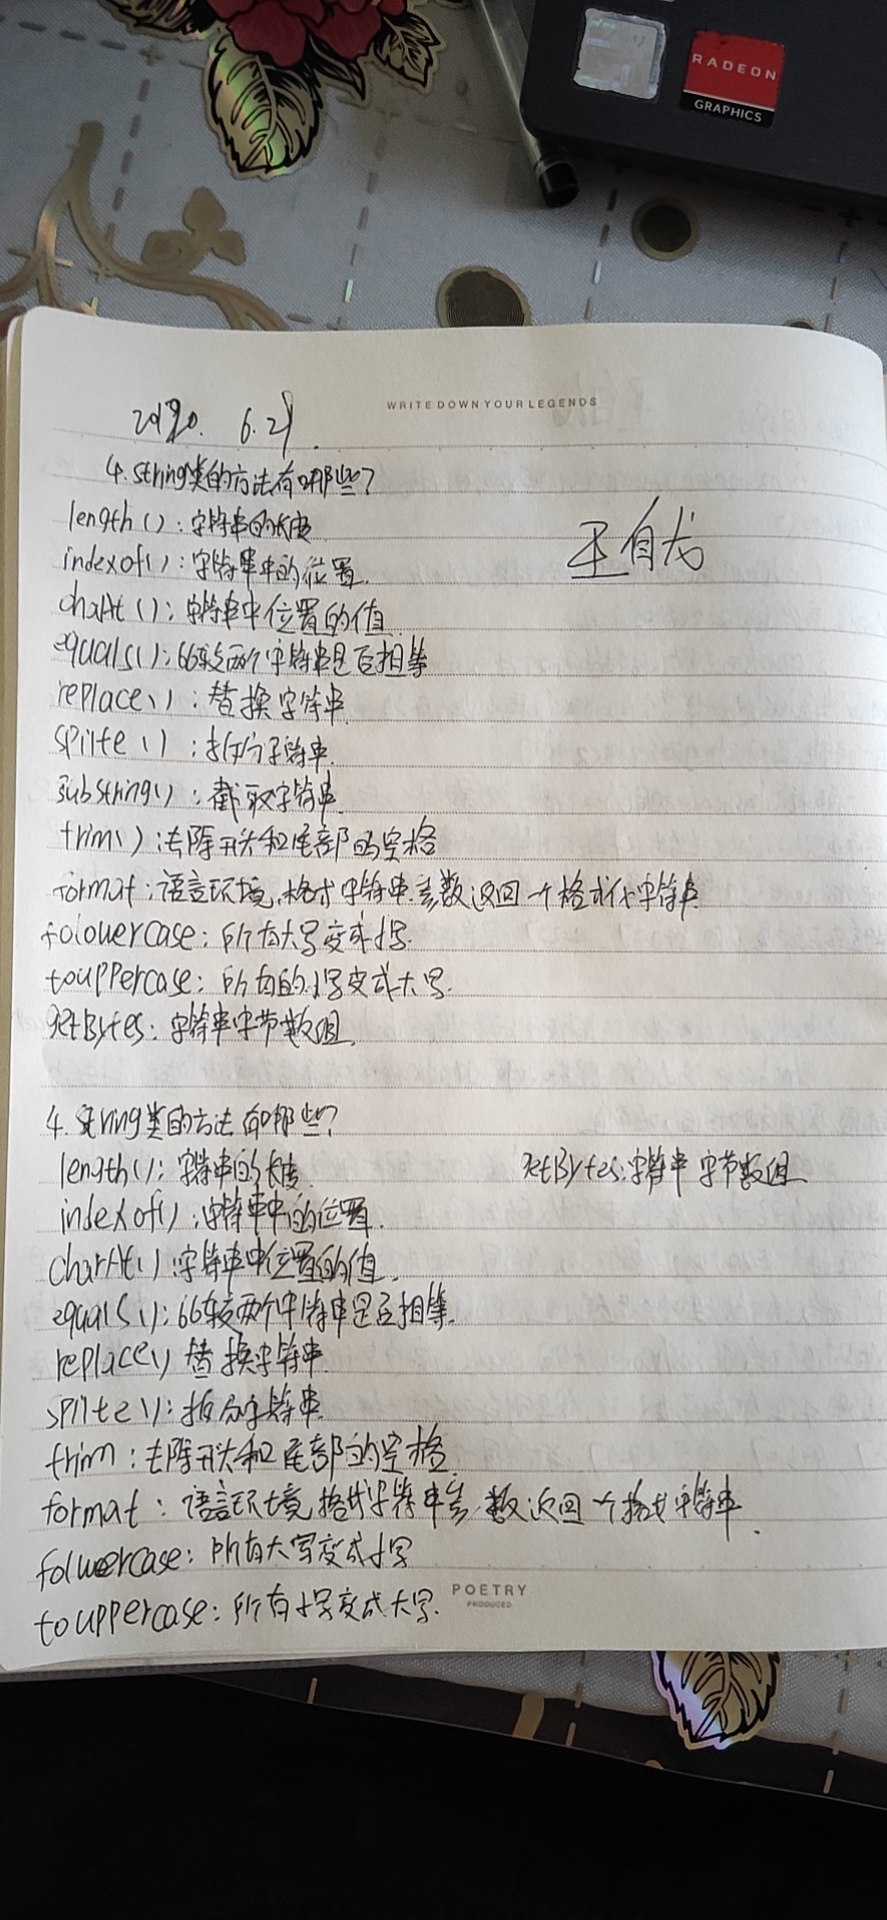 RADEON
GRAPHICS
WRITE DOWN YOUR LEGENDS
2020. 6.21.
4.string类的方法有哪些?
王自龙
length():字符串的长度
indexof():字符串中的位置.
charAt():字符串中位置的值.
equals():比较两个字符串是否相等
replace():替换字符串.
spilte():拆分字符串.
substring():截取字符串.
trim():去除开头和尾部的空格
format:语言环境,格式字符串.参数返回一个格式化字符串.
tolouercase:所有大写变成小写.
touppercase:所有的小写变成大写.
getBytes:字符串字节数组.
4.string类的方法有哪些?
length():字符串的长度.
getBytes:字符串字节数组.
indexof():字符串中的位置.
charAt():字符串中位置的值.
equals():比较两个字符串是否相等.
replace()替换字符串.
spilte():拆分字符串.
trim:去除开头和尾部的空格.
format:语言环境格式字符串参数返回一个格式字符串.
tolowercase:所有大写变成小写
touppercase:所有小写变成大写.
POETRY
PRODUCED